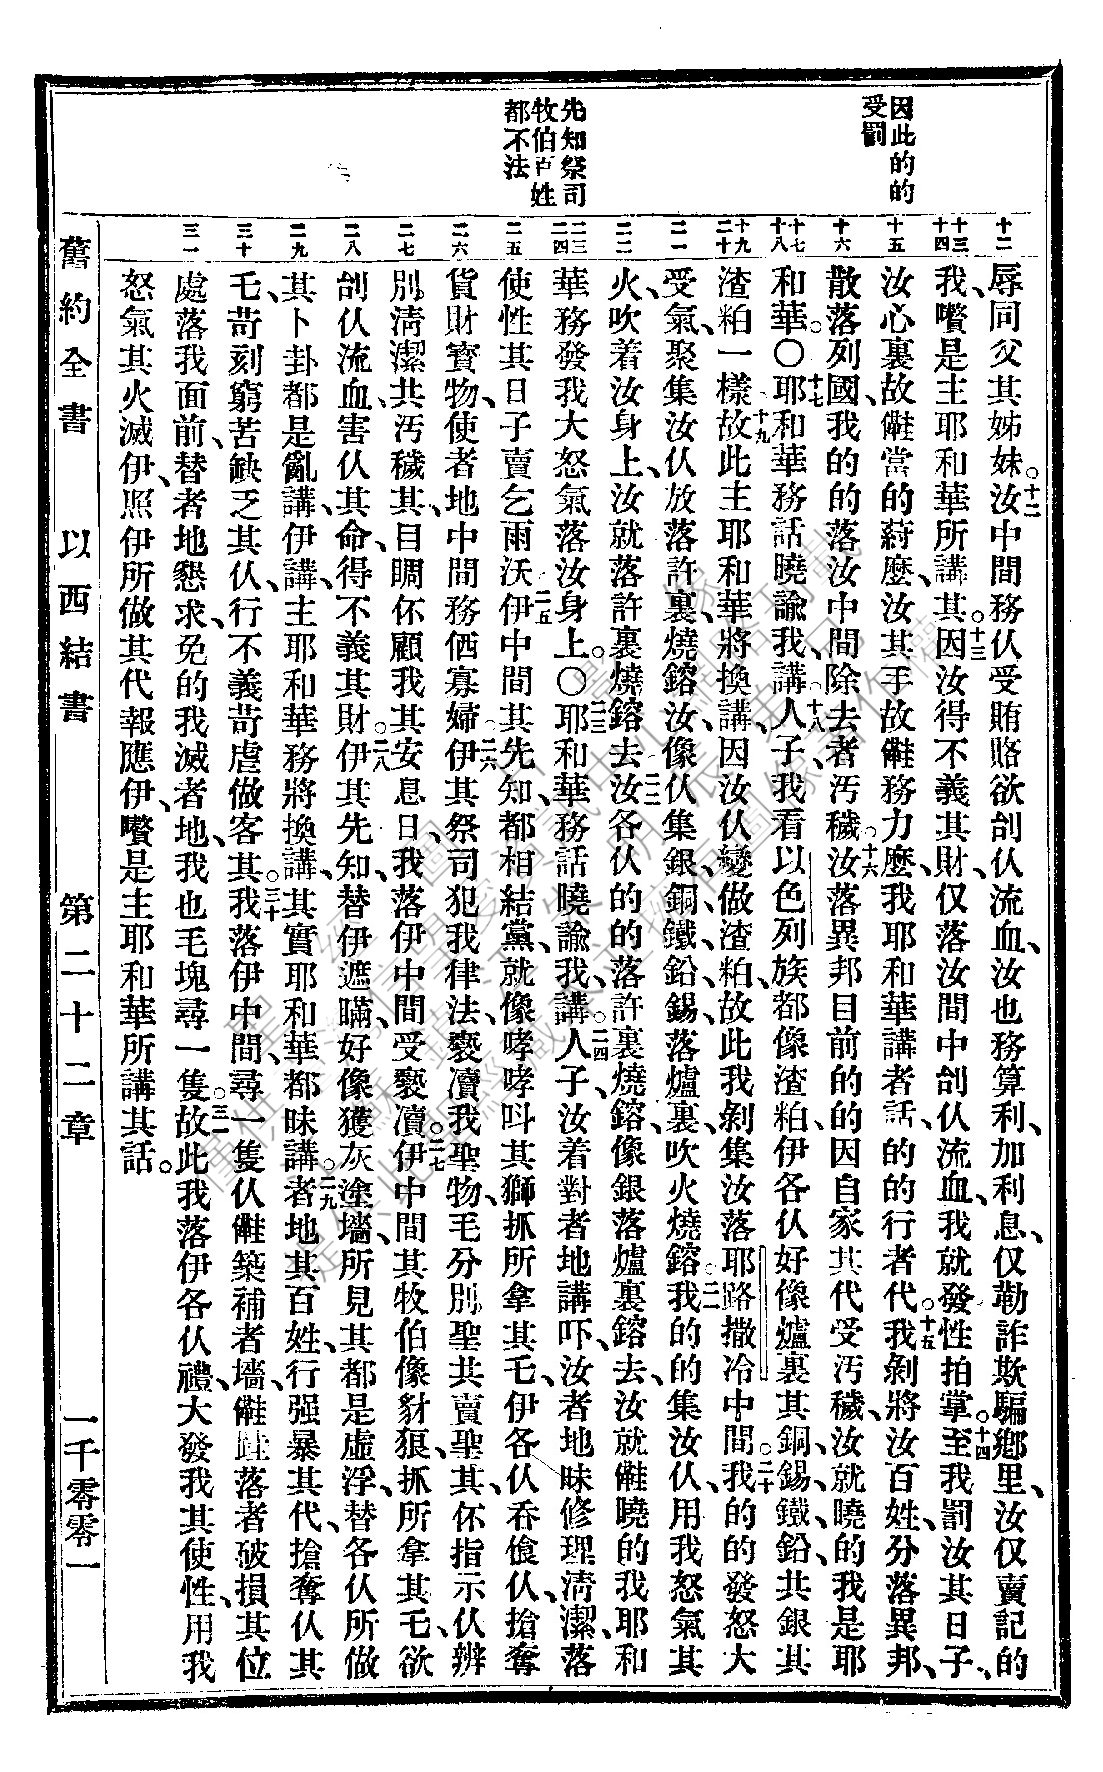 因此的的
受罰
先知祭司
牧伯百姓
都不法
十二
十三
十四
十五
十六
十七
十八
十九
二十
二一
二二
二三
二四
二五
二六
二七
二八
二九
三十
三一
辱同父其姊妹。十二汝中間務仈受賄賂欲刣仈流血、汝也務算利、加利息、仅勒詐欺騙鄉里、汝仅賣記的
我、囋是主耶和華所講其。十三因汝得不義其財、仅落汝間中刣仈流血、我就發性拍掌。十四至我罰汝其日子、
汝心裏故㒑當的葤麽、汝其手故㒑務力麽、我耶和華講者話、的的行者代。十五我剝將汝百姓、分落異邦、
散落列國、我的的落汝中間除去者汚穢。十六汝落異邦目前的的因自家其代受汚穢、汝就曉的我是耶
和華。〇十七耶和華務話曉諭我、講、十八人子、我看以色列族都像渣粕、伊各仈好像爐裏其銅、錫、鐵、鉛、共銀其
渣粕一樣、十九故此主耶和華將換講、因汝仈變做渣粕、故此我剝集汝落耶路撒冷中間。二十我的的發怒大
受氣、聚集汝仈放落許裏燒鎔汝、像仈集銀、銅、鐵、鉛、錫、落爐裏、吹火燒鎔。二一我的的集汝仈、用我怒氣其
火、吹着汝身上、汝就落許裏燒鎔去、二二汝各仈的的落許裏燒鎔、像銀落爐裏鎔去、汝就㒑曉的我耶和
華務發我大怒氣落汝身上。〇二三耶和華務話曉諭我、講、二四人子、汝着對者地講吓、汝者地昧修理清潔、落
使性其日子賣乞雨沃、二五伊中間其先知、都相結黨、就像哮哮叫其獅抓所拿其乇、伊各仈吞傖仈、搶奪
貨財寶物、使者地中間務価寡婦。二六伊其祭司犯我律法、褻瀆我聖物、毛分別聖共賣聖其、伓指示仈辨
別清潔共汚穢其、目睭伓顧我其安息日、我落伊中間受褻瀆。二七伊中間其牧伯像豺狼、抓所拿其乇、欲
刣仈流血、害仈其命、得不義其財。二八伊其先知、替伊遮瞞、好像獲灰塗墻、所見其都是虛浮、替各仈所做
其卜卦都是亂講、伊講、主耶和華務將換講、其實耶和華都昧講。二九者地其百姓、行强暴其代、搶奪仈其
乇、苛刻窮苦缺乏其仈、行不義苛虐做客其。三十我落伊中間、尋一隻仈㒑築補者墻、㒑落者破損其位
處落我面前、替者地懇求、免的我滅者地、我也毛塊尋一隻。三一故此我落伊各仈禮、大發我其使性、用我
怒氣其火滅伊、照伊所做其代報應伊、囋是主耶和華所講其話。
舊約全書　以西結書　第二十二章　一千零零一